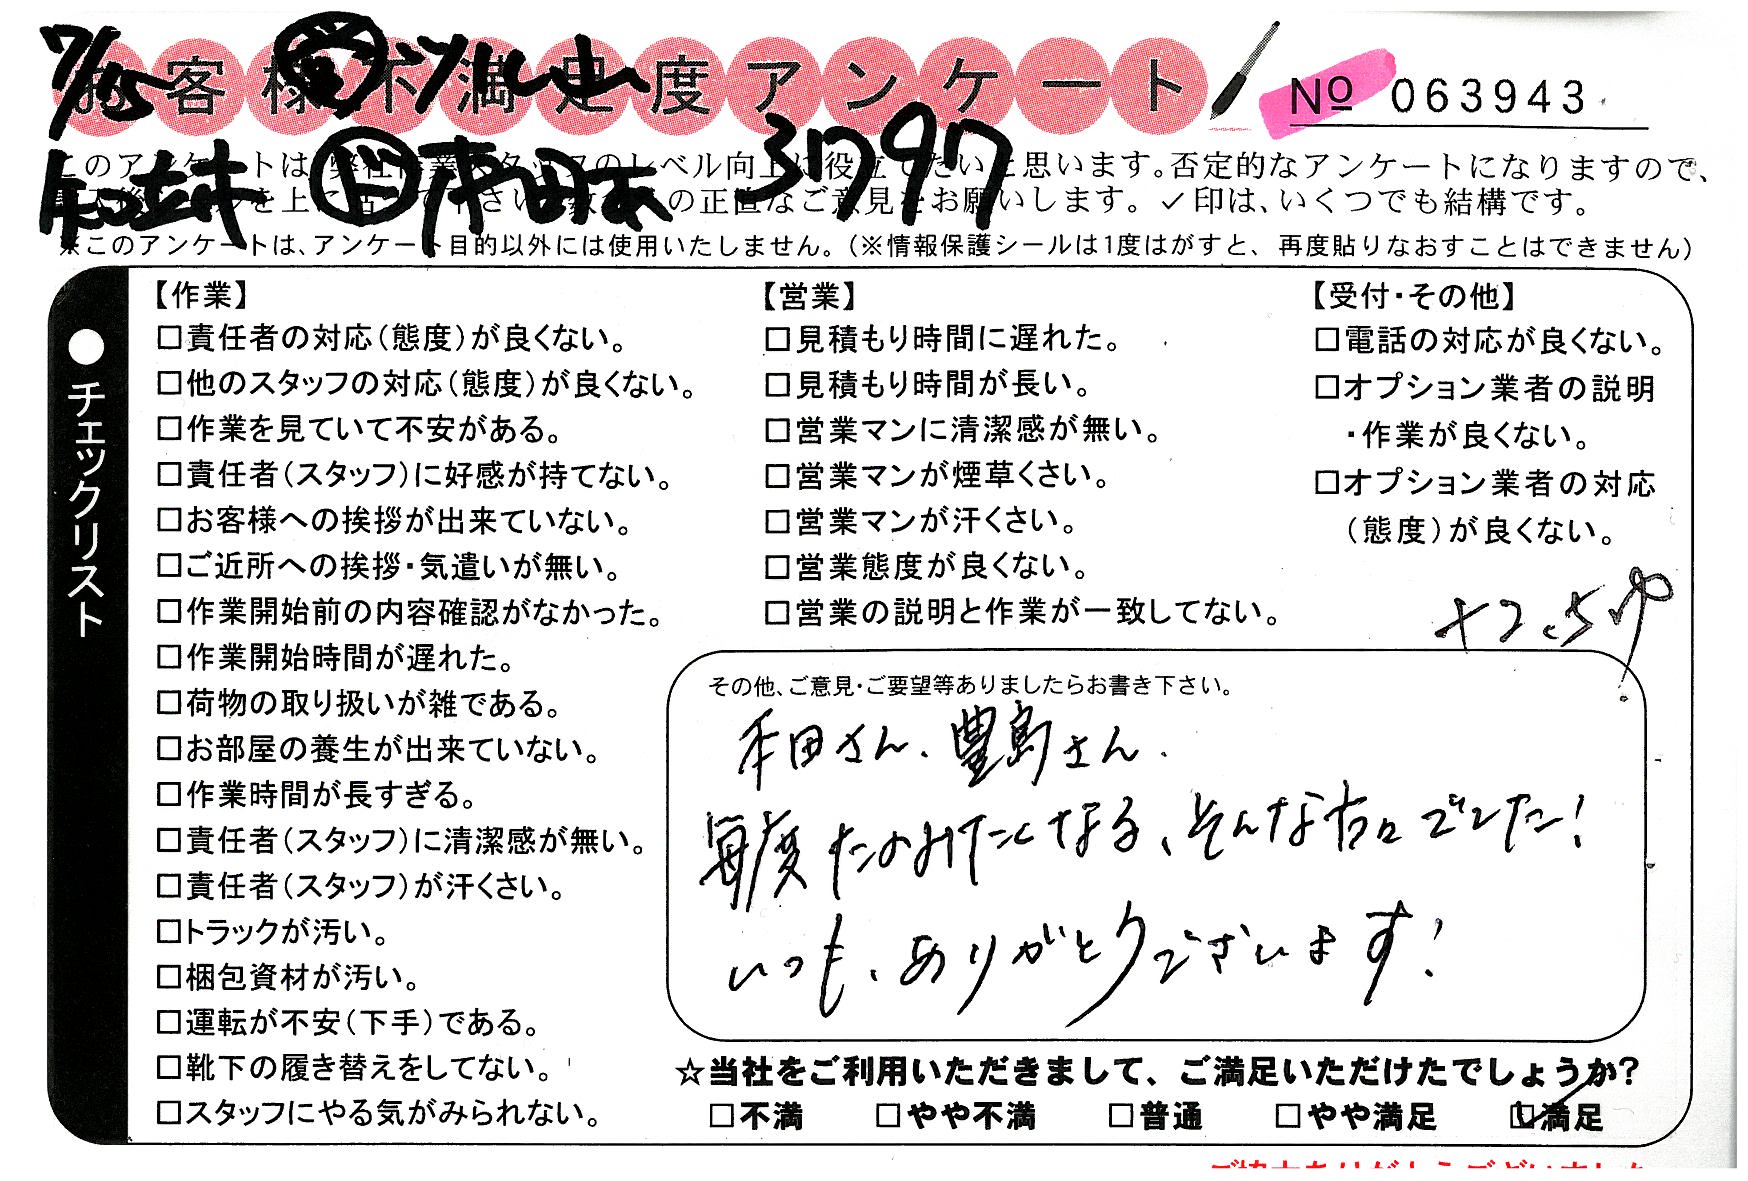 お客様不満足度アンケート
No 063943
7/15
3797
このアンケートは、弊社作業スタッフのレベル向上に役立てたいと思います。否定的なアンケートになりますので、
の正直なご意見をお願いします。✓印は、いくつでも結構です。
※このアンケートは、アンケート目的以外には使用いたしません。(※情報保護シールは1度はがすと、再度貼りなおすことはできません)
●チェックリスト
【作業】
□責任者の対応(態度)が良くない。
□他のスタッフの対応(態度)が良くない。
□作業を見ていて不安がある。
□責任者(スタッフ)に好感が持てない。
□お客様への挨拶が出来ていない。
□ご近所への挨拶・気遣いが無い。
□作業開始前の内容確認がなかった。
□作業開始時間が遅れた。
□荷物の取り扱いが雑である。
□お部屋の養生が出来ていない。
□作業時間が長すぎる。
□責任者(スタッフ)に清潔感が無い。
□責任者(スタッフ)が汗くさい。
□トラックが汚い。
□梱包資材が汚い。
□運転が不安(下手)である。
□靴下の履き替えをしてない。
□スタッフにやる気がみられない。
【営業】
□見積もり時間に遅れた。
□見積もり時間が長い。
□営業マンに清潔感が無い。
□営業マンが煙草くさい。
□営業マンが汗くさい。
□営業態度が良くない。
□営業の説明と作業が一致してない。
【受付・その他】
□電話の対応が良くない。
□オプション業者の説明
・作業が良くない。
□オプション業者の対応
(態度)が良くない。
その他、ご意見・ご要望等ありましたらお書き下さい。
本田さん、豊島さん、
毎度たのみたくなる、そんな方々でした!
いつも、ありがとうございます!
☆当社をご利用いただきまして、ご満足いただけたでしょうか?
□不満 □やや不満 □普通 □やや満足 ☑満足